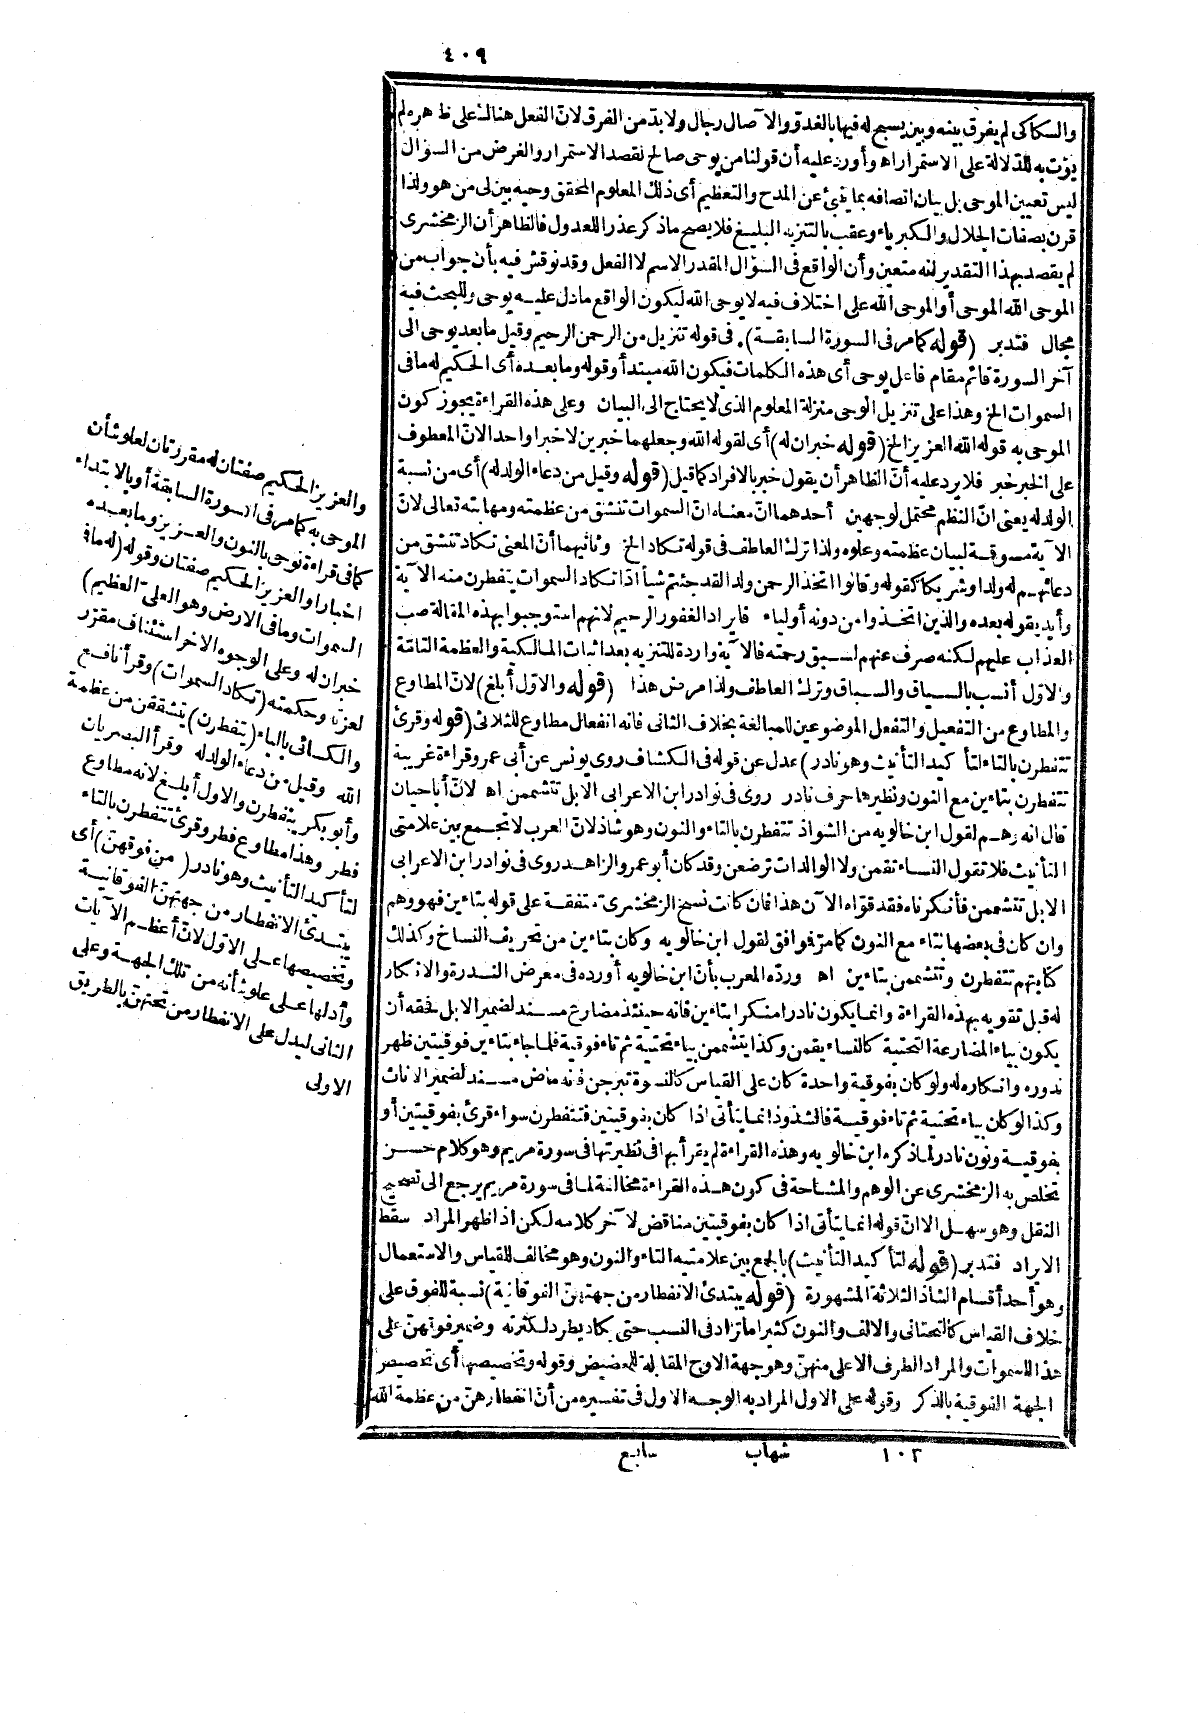 ٤٠٩
والسكاكى لم يفرق بينه وبين يسبح له فيها بالغدو والآصال رجال ولابد من الفرق لان الفعل هنالك على ظاهره لم
يؤت به للدلالة على الاستمرار اه وأورد عليه أن قولنا من يوحى صالح لقصد الاستمرار والغرض من السؤال
ليس تعيين الموحى بل بيان اتصافه بما ينبئ عن المدح والتعظيم أى ذلك المعلوم المحقق وحيه بين لى من هو ولذا
قرن بصفات الجلال والكبرياء وعقب بالتنزيه البليغ فلا يصح ماذكر عذرا للعدول فالظاهر أن الزمخشرى
لم يقصد بهذا التقدير انه متعين وأن الواقع فى السؤال المقدر الاسم لا الفعل وقد نوقش فيه بأن جواب من
الموحى الله الموحى أو الموحى الله على اختلاف فيه لا يوحى الله ليكون الواقع مادل عليه يوحى وللبحث فيه
مجال فتدبر (قوله كما مر فى السورة السابقة) . فى قوله تنزيل من الرحمن الرحيم وقيل مابعد يوحى الى
آخر السورة قائم مقام فاعل يوحى أى هذه الكلمات فيكون الله مبتدأ وقوله ومابعده أى الحكيم له مافى
السموات الخ وهذا على تنزيل الوحى منزلة المعلوم الذى لايحتاج الى البيان وعلى هذه القراءة يجوز كون
الموحى به قوله الله العزيز الخ (قوله خبران له) أى لقوله الله وجعلهما خبرين لا خبرا واحدا لان المعطوف
على الخبر خبر فلا يرد عليه أن الظاهر أن يقول خبر بالافراد كما قيل (قوله وقيل من دعاء الولد له) أى من نسبة
الولد له يعنى ان النظم محتمل لوجهين أحدهما ان معناه ان السموات تتشقق من عظمته ومهابته تعالى لان
الآية مسوقة لبيان عظمته وعلوه ولذا ترك العاطف فى قوله تكاد الخ وثانيهما أن المعنى تكاد تنشق من
دعائهم له ولدا وشريكا كقوله وقالوا اتخذ الرحمن ولدا لقد جئتم شيأ ادّا تكاد السموات يتفطرن منه الآية
وأيد بقوله بعده والذين اتخذوا من دونه أولياء فايراد الغفور الرحيم لانهم استوجبوا بهذه المقالة صب
العذاب عليهم لكنه صرف عنهم لسبق رحمته فالآية واردة للتنزيه بعد اثبات المالكية والعظمة التامة
والاول أنسب بالسياق والسباق وترك العاطف ولذا مرض هذا (قوله والاول أبلغ) لان المطاوع
والمطاوع من التفعيل والتفعل الموضوعين للمبالغة بخلاف الثانى فانه انفعال مطاوع للثلاثى (قوله وقرئ
تتفطرن بالتاء لتأكيد التأنيث وهو نادر) عدل عن قوله فى الكشاف روى يونس عن أبى عمرو قراءة غريبة
تتفطرن بتاءين مع النون ونظيرها حرف نادر روى فى نوادر ابن الاعرابى الابل تتشممن اه لان أباحيان
قال انه وهم لقول ابن خالويه من الشواذ تتفطرن بالتاء والنون وهو شاذ لان العرب لا تجمع بين علامتى
التأنيث فلا تقول النساء تقمن ولا الوالدات ترضعن وقد كان أبو عمر والزاهد روى فى نوادر ابن الاعرابى
الابل تتشممن فأنكرناه فقد قواه الآن هذا فان كانت نسخ الزمخشرى متفقة على قوله بتاءين فهو وهم
وان كان فى بعضها بتاء مع النون كما مر فوافق لقول ابن خالويه وكان بتاءين من تحريف النساخ وكذلك
كتابتهم تتفطرن وتتشممن بتاءين اه ورده المعرب بأن ابن خالويه أورده فى معرض الندرة والانكار
له قبل تقويه بهذه القراءة وانما يكون نادرا منكرا بتاءين فانه حينئذ مضارع مسند لضمير الابل فحقه أن
يكون بياء المضارعة التحتية كالنساء يقمن وكذا يتشممن بياء تحتية ثم تاء فوقية فلما جاء بتاءين فوقيتين ظهر
ندوره وانكاره له ولو كان بفوقية واحدة كان على القياس كالنسوة تبرجن فانه ماض مسند لضمير الاناث
وكذا لو كان بياء تحتية ثم تاء فوقية فالشذوذ انما يتأتى اذا كان بفوقيتين فتتفطرن سواء قرئ بفوقيتين أو
بفوقية ونون نادر لما ذكره ابن خالويه وهذه القراءة لم يقرأ بها فى نظيرتها فى سورة مريم وهو كلام حسن
تخلص به الزمخشرى عن الوهم والمشاحة فى كون هذه القراءة مخالفة لما فى سورة مريم يرجع الى تصحيح
النقل وهو سهل الا ان قوله انما يتأتى اذا كان بفوقيتين مناقض لآخر كلامه لكن اذا ظهر المراد سقط
الايراد فتدبر (قوله لتأكيد التأنيث) بالجمع بين علامتيه التاء والنون وهو مخالف للقياس والاستعمال
وهو أحد أقسام الشاذ الثلاثة المشهورة (قوله يبتدئ الانفطار من جهتهن الفوقانية) نسبة للفوق على
خلاف القياس كالتحتانى والالف والنون كثيرا ماتزاد فى النسب حتى يكاد يطرد لكثرته وضمير فوقهن على
هذا للسموات والمراد الطرف الاعلى منهن وهو جهة الاوج المقابلة للحضيض وقوله وتخصيصها أى تخصيص
الجهة الفوقية بالذكر وقوله على الاول المراد به الوجه الاول فى تفسيره من أن انفطارهن من عظمة الله
١٠٢ شهاب سابع
والعزيز الحكيم صفتان له مقررتان لعلو شأن
الموحى به كما مر فى السورة السابقة أو بالابتداء
كما فى قراءة نوحى بالنون والعزيز ومابعده
اخبار أو العزيز الحكيم صفتان وقوله (له مافى
السموات ومافى الارض وهو العلى العظيم)
خبران له وعلى الوجوه الاخر استئناف مقرر
لعزته وحكمته (تكاد السموات) وقرأ نافع
والكسائى بالياء (يتفطرن) يتشققن من عظمة
الله وقيل من دعاء الولد له وقرأ البصريان
وأبو بكر ينفطرن والاول أبلغ لانه مطاوع
فطر وهذا مطاوع فطر وقرئ تتفطرن بالتاء
لتأكيد التأنيث وهو نادر (من فوقهن) أى
يبتدئ الانفطار من جهتهن الفوقانية
وتخصيصها على الاول لان أعظم الآيات
وأدلها على علو شأنه من تلك الجهة وعلى
الثانى ليدل على الانفطار من تحتهن بالطريق
الاولى